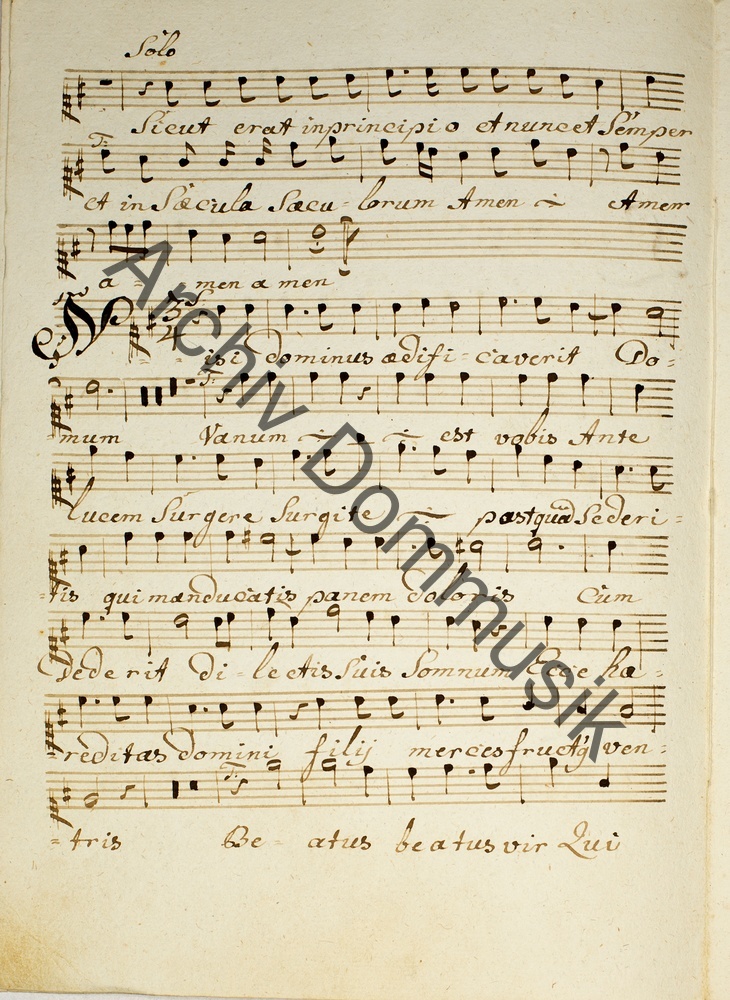 Solo
Sicut erat in principio et nunc et Semper
T:
et in Sæcula Sæcu - lorum Amen Amen
a - men a men
3/4
Nisi dominus ædifi - caverit Do =
T:
mum Vanum est vobis Ante
lucem Surgere Surgite postquã Sederi =
= tis qui manducatis panem doloris Cum
Dederit di - lectis Suis Somnum Ecce hæ =
= reditas domini filij merces fructq ven =
T:
= tris Be - atus beatus vir Qui
Archiv Dommusik